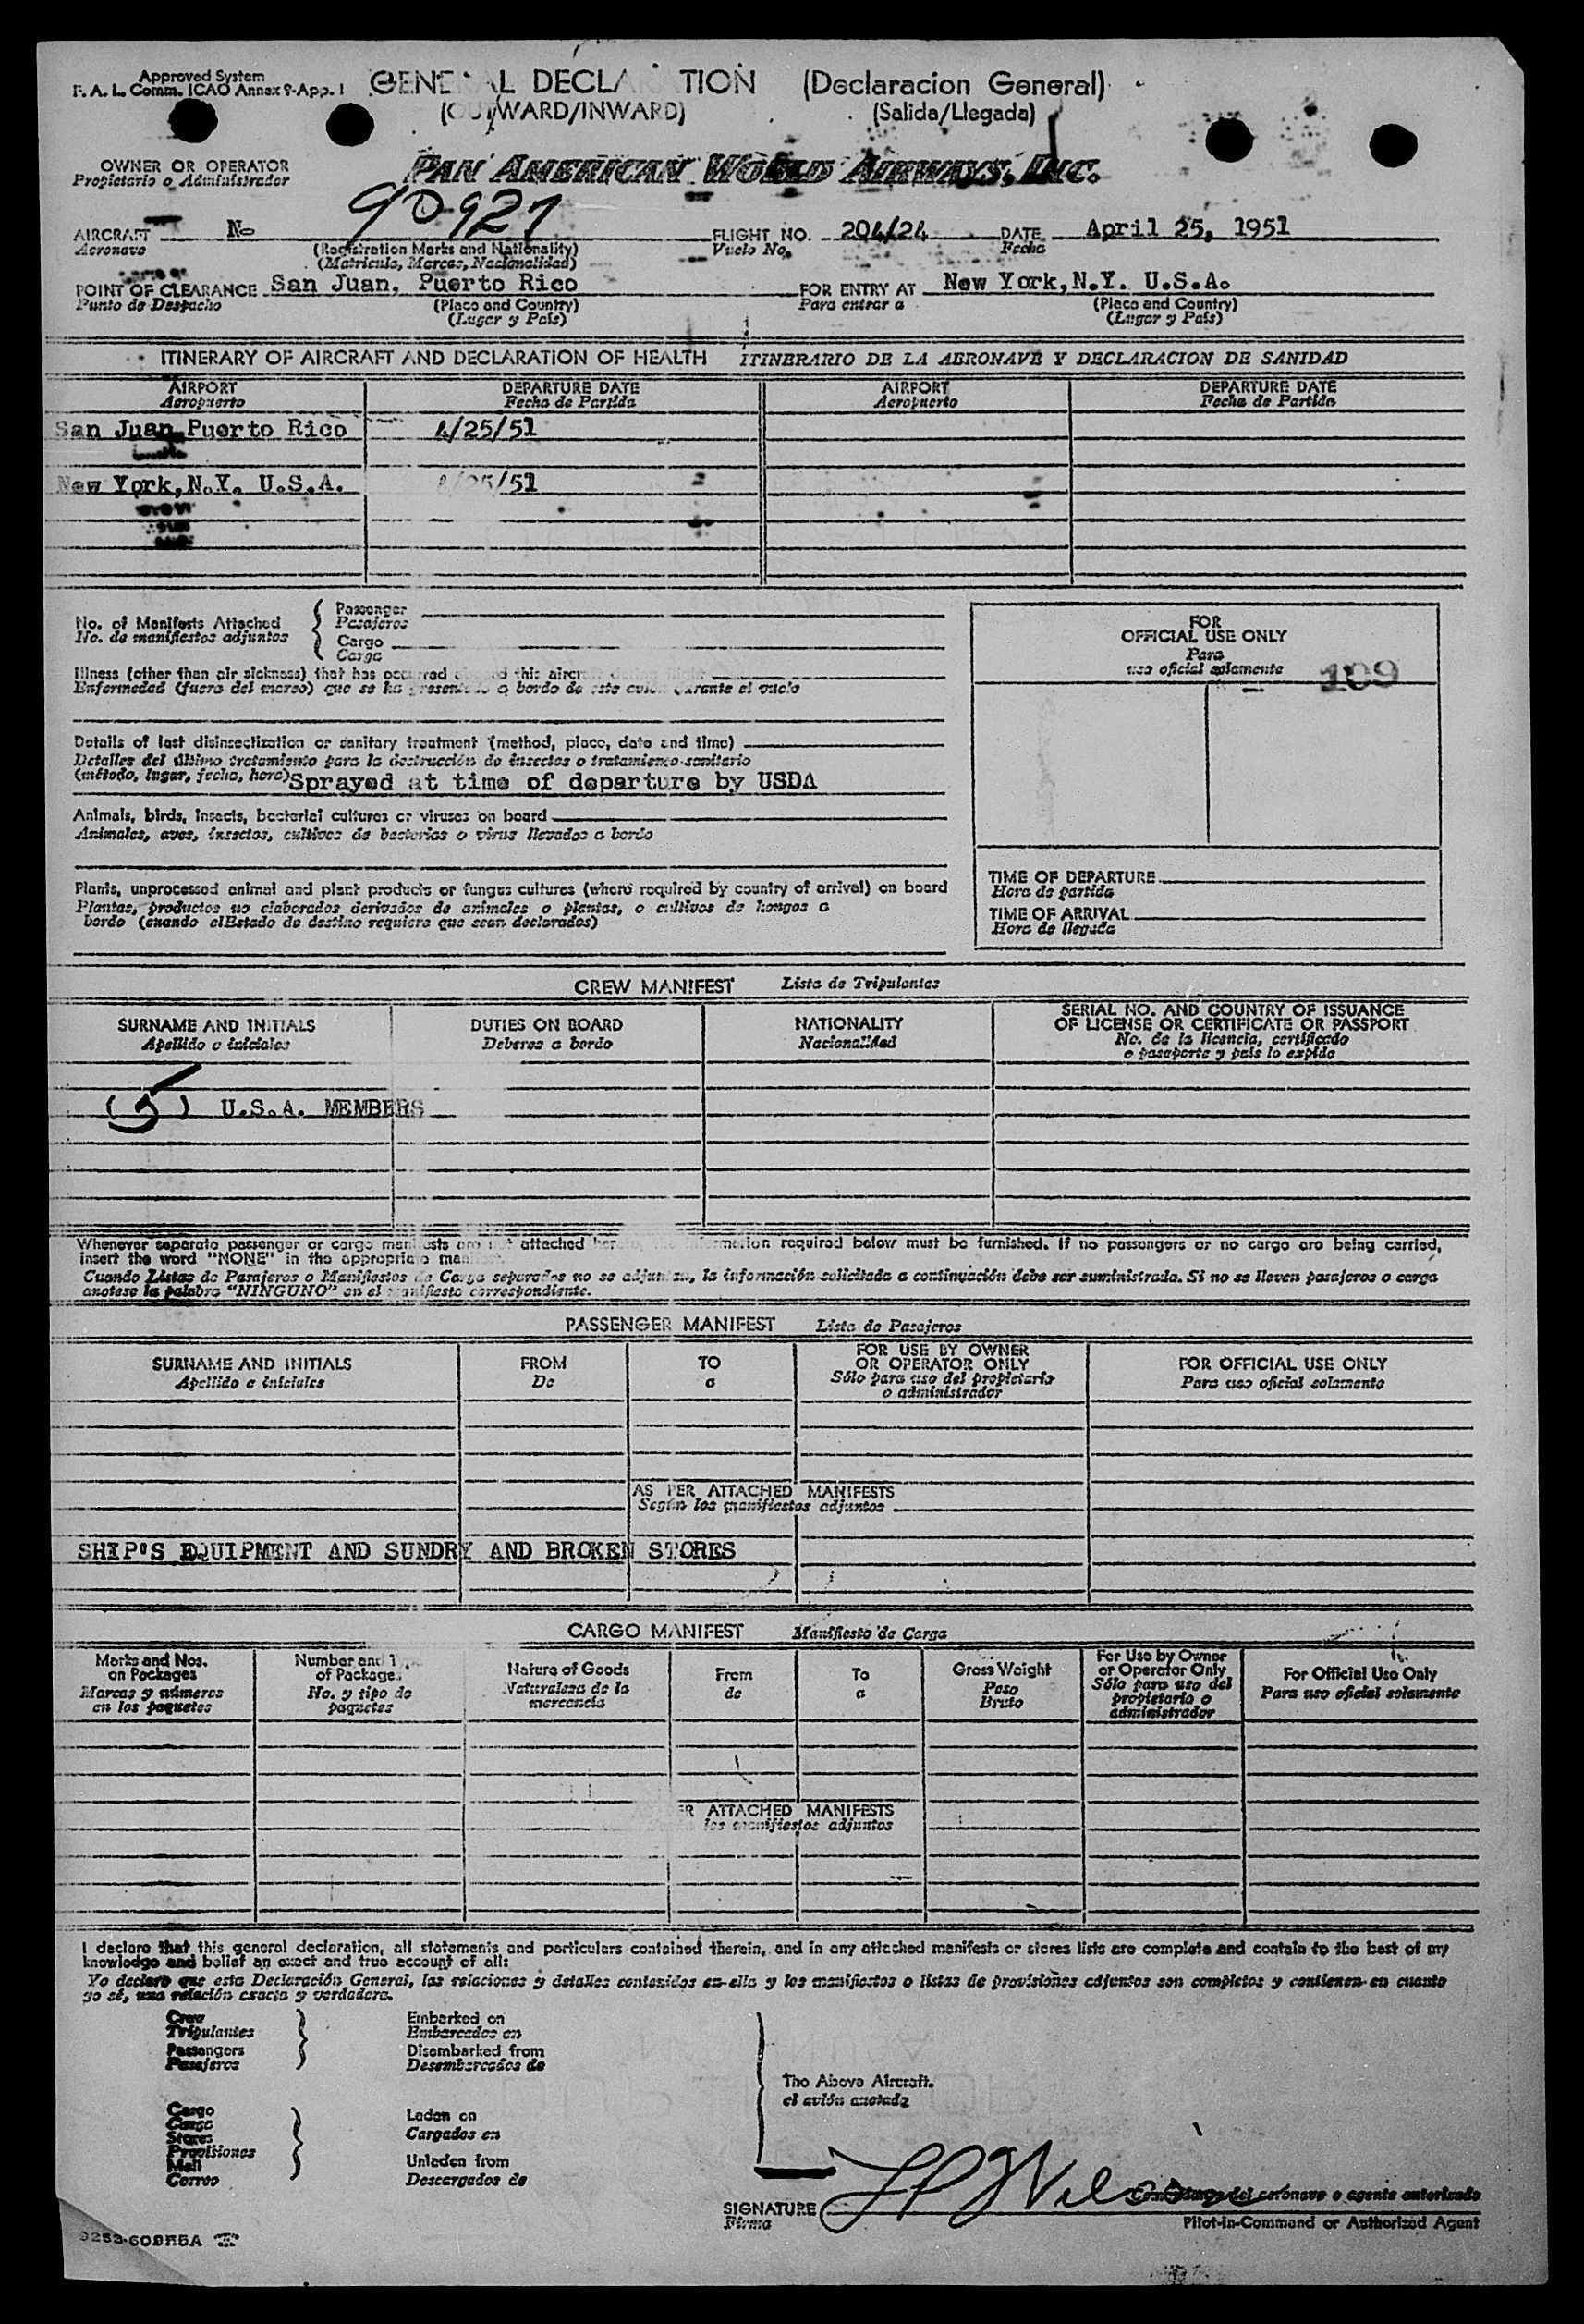 Approved System
F. A. L. Comm. ICAO Annex 9-App. 1
GENE AL DECLA TION (Declaracion General)
(OUTWARD/INWARD) (Salida/Llegada)
OWNER OR OPERATOR
Propietario o Administrador
PAN AMERICAN WORLD AIRWAYS, INC.
AIRCRAFT No 90927 FLIGHT NO. 204/24 DATE April 25, 1951
Aeronave (Registration Marks and Nationality) Vuelo No. Fecha
(Matricula, Marcas, Nacionalidad)
POINT OF CLEARANCE San Juan, Puerto Rico FOR ENTRY AT New York, N.Y. U.S.A.
Punto de Despacho (Place and Country) Para entrar a (Place and Country)
(Lugar y País) (Lugar y País)
ITINERARY OF AIRCRAFT AND DECLARATION OF HEALTH ITINERARIO DE LA AERONAVE Y DECLARACION DE SANIDAD
AIRPORT DEPARTURE DATE AIRPORT DEPARTURE DATE
Aeropuerto Fecha de Partida Aeropuerto Fecha de Partida
San Juan Puerto Rico 4/25/51
New York, N.Y. U.S.A. 4/25/51
No. of Manifests Attached
No. de manifiestos adjuntos
Passenger
Pasajeros
Cargo
Carga
FOR
OFFICIAL USE ONLY
Para
uso oficial solamente 109
Illness (other than air sickness) that has occurred this aircr
Enfermedad (fuera del mareo) que se ha presentado a bordo de este durante el vuelo
Details of last disinsectization or sanitary treatment (method, place, date and time)
Detalles del último tratamiento para la destrucción de insectos o tratamiento sanitario
(método, lugar, fecha, hora) Sprayed at time of departure by USDA
Animals, birds, insects, bacterial cultures or viruses on board
Animales, aves, insectos, cultivos de bacterias o virus llevados a bordo
Plants, unprocessed animal and plant products or fungus cultures (where required by country of arrival) on board
Plantas, productos no elaborados derivados de animales o plantas, o cultivos de hongos a
bordo (cuando el Estado de destino requiera que sean declarados)
TIME OF DEPARTURE
Hora de partida
TIME OF ARRIVAL
Hora de llegada
CREW MANIFEST Lista de Tripulantes
SURNAME AND INITIALS DUTIES ON BOARD NATIONALITY SERIAL NO. AND COUNTRY OF ISSUANCE
OF LICENSE OR CERTIFICATE OR PASSPORT
Apellido e iniciales Deberes a bordo Nacionalidad No. de la licencia, certificado
o pasaporte y país lo expide
(5) U.S.A. MEMBERS
Whenever separate passenger or cargo manifests are not attached hereto, information required below must be furnished. If no passengers or no cargo are being carried,
insert the word "NONE" in the appropriate
Cuando Listas de Pasajeros o Manifiestos de Carga separados no se adjuntan, la información solicitada a continuación debe ser suministrada. Si no se lleven pasajeros o carga
anotese la palabra "NINGUNO" en el manifiesto correspondiente.
PASSENGER MANIFEST Lista de Pasajeros
SURNAME AND INITIALS FROM TO FOR USE BY OWNER
OR OPERATOR ONLY FOR OFFICIAL USE ONLY
Apellido e iniciales De a Sólo para uso del propietario
o administrador Para uso oficial solamente
AS PER ATTACHED MANIFESTS
Según los manifiestos adjuntos
SHIP'S EQUIPMENT AND SUNDRY AND BROKEN STORES
CARGO MANIFEST Manifiesto de Carga
Marks and Nos.
on Packages
Marcas y números
en los paquetes
Number and Type
of Packages
No. y tipo de
paquetes
Nature of Goods
Naturaleza de la
mercancía
From
de
To
a
Gross Weight
Peso
Bruto
For Use by Owner
or Operator Only
Sólo para uso del
propietario o
administrador
For Official Use Only
Para uso oficial solamente
ER ATTACHED MANIFESTS
los manifiestos adjuntos
I declare that this general declaration, all statements and particulars contained therein, and in any attached manifests or stores lists are complete and contain to the best of my
knowledge and belief an exact and true account of all:
Yo declaro que esta Declaración General, las relaciones y detalles contenidos en ella y los manifiestos o listas de provisiones adjuntos son completos y contienen en cuanto
yo sé, una relación exacta y verdadera.
Crew
Tripulantes
Passengers
Pasajeros
Embarked on
Embarcados en
Disembarked from
Desembarcados de
The Above Aircraft.
el avión anotado
Cargo
Carga
Stores
Provisiones
Mail
Correo
Laden on
Cargados en
Unladen from
Descargados de
SIGNATURE
Firma
Comandante del aeronave o agente autorizado
Pilot-in-Command or Authorized Agent